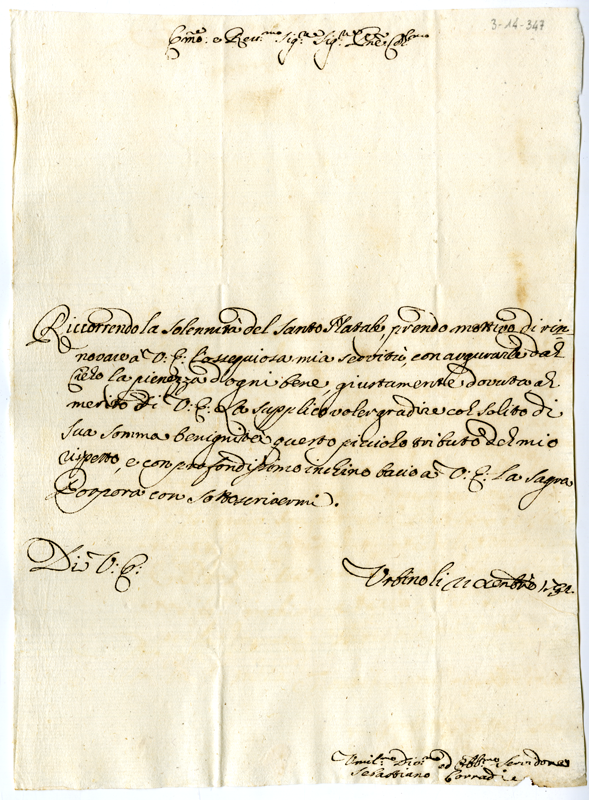 3-14-347
Em̃o. e Reu.mo Sig.re Sig.re P̃ne Col.mo
Riccorrendo la Solennità del Santo Natale prendo mottivo di rin-
novare a V: E: l'ossequiosa mia servitù, con augurarle dal
Cielo la pienezza d'ogni bene, giustamente dovuta al
merito di V: E: e la supplico voler gradire col solito di
sua somma benignità questo piccolo tributo del mio
rispetto, e con profondissimo inchino bacio a V: E: la Sagra
Porpora con sottoscrivermi.
Di V: E:
Urbino li Xenbre
Umil.mo Div.mo ed Obb.mo Servidore
Sebastiano Corradi